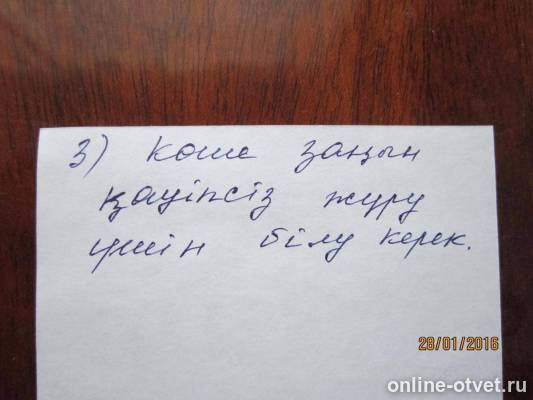 3) Коше заңын
қауіпсіз жүру
үшін білу керек.
28/01/2016
online-otvet.ru